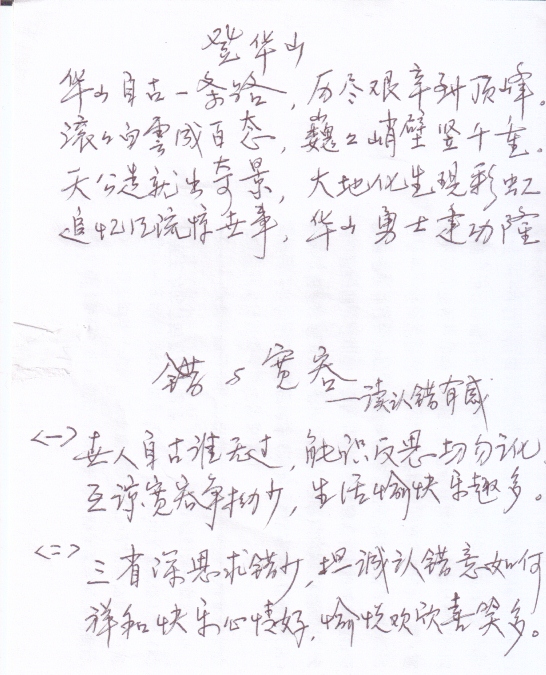 登华山
华山自古一条路，历尽艰辛到顶峰。
滚滚白雲成百态，巍巍峭壁竖千重。
天公造就出奇景，大地化生现彩虹
追忆风流惊世事，华山勇士建功隆
错与宽容
—读认错有感
<一>世人自古谁无过，能识反思切勿讹
互谅宽容争执少，生活愉快乐趣多。
<二>三省深思求错少，坦诚认错意如何
祥和快乐心情好，愉悦欢欣喜笑多。